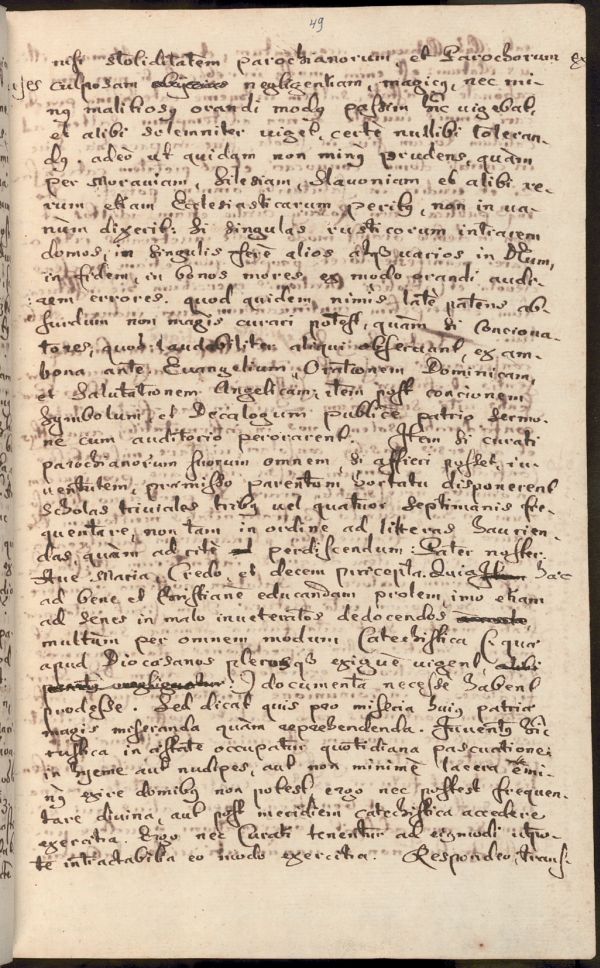 49
nisi stoliditatem parochianorum, et Parochorum ex
culposam negligentiam, magicy, nec mi-
ny malitiosy orandi mody passim hic vigebat,
et alibi solemniter viget, certe nullibi toleran-
dy. adeò, ut quidam non miny prudens, quàm
per Moraviam, Silesiam, Slavoniam, et alibi re-
rum etiam Ecclesiasticarum perity, non in va-
num dixerit: Si singulas rusticorum intrarem
domos, in singulis ferè alios atqs varios in Deum,
in fidem, in bonos mores, ex modo orandi audi-
rem errores. quod quidem nimis latè patens ab-
surdum non magis curari potest, quàm si Conciona-
tores, quod laudabiliter aliqui observant, ex am-
bona ante Evangelium Orationem Dominicam,
et Salutationem Angelicam; item post concionem
Symbolum, et Decalogum publicè patrio sermo-
ne cum auditorio perorarent. Item si curati
parochianorum suorum omnem, si effici posset, iu-
ventutem, praemisso parentum hortatu disponerent
scholas triviales triby vel quatuor septimanis fre-
quentare, non tam in ordine ad litteras haurien-
das, quàm ad citè perdiscendum: Pater noster.
Ave Maria, Credo, et decem praecepta. Quia haec
ad bene et Christianè educandam prolem, imo etiam
ad senes in malo inveteratos dedocendos
multum per omnem modum Catechistica (: quae
apud Dioecesanos plerosqs exiguè vigent
:) documenta necesse habent
prodesse. Sed dicat quis pro miseria huiy patriae
magis miseranda quàm reprehendenda. Iuventy hic
rustica in aestate occupatur quotidiana pascuatione;
in hyeme aut nudipes, aut non minimè lacera emi-
ny exire domiby non potest ergo nec potest frequen-
tare divina, aut post meridiem catechistica accedere
exercitia. Ergo nec Curati tenentur ad eiusmodi utpo-
te intractabilia eo modo exercitia. Respondeo, trans-